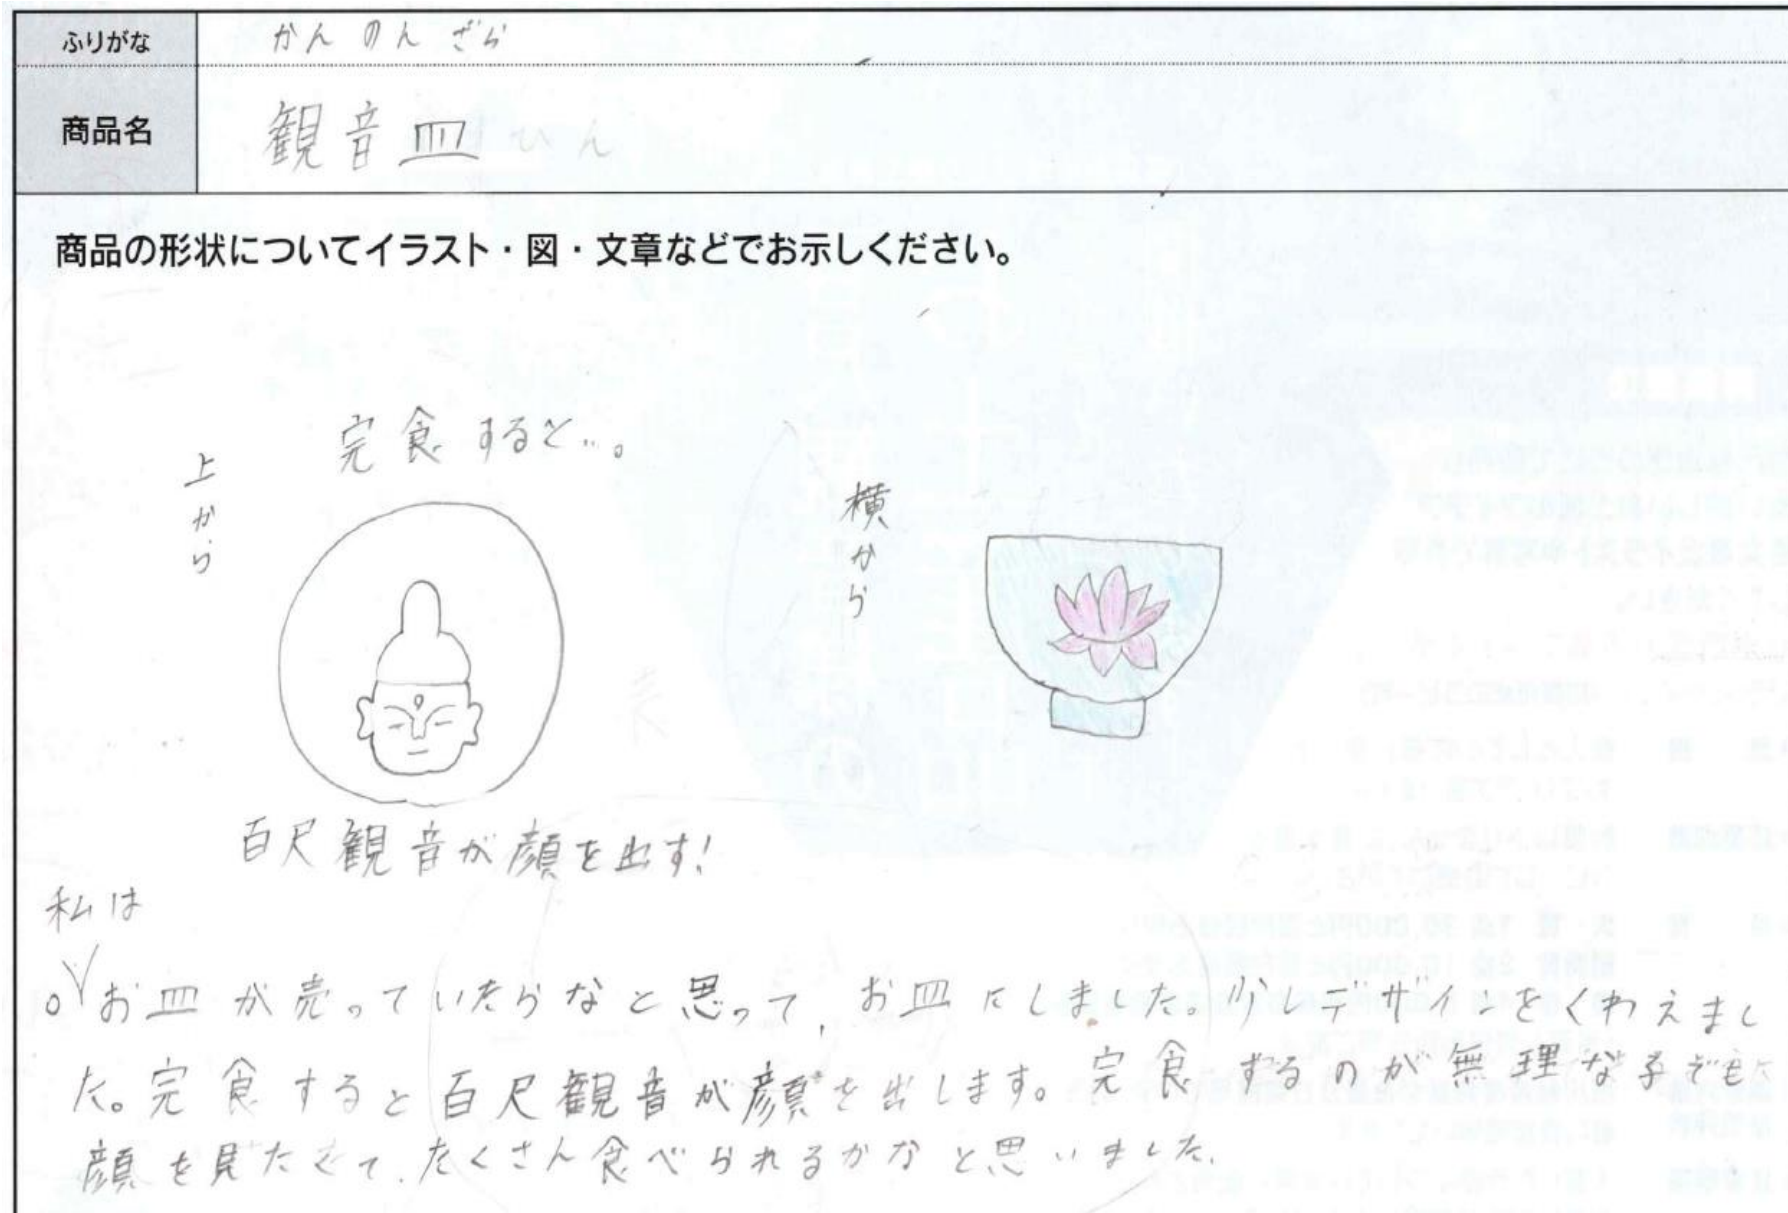 ふりがな
かんのんざら
商品名
観音皿
商品の形状についてイラスト・図・文章などでお示しください。
完食すると…。
上から
横から
百尺観音が顔を出す!
私は
○お皿が売っていたらなと思って、お皿にしました。少しデザインをくわえまし
た。完食すると百尺観音が顔を出します。完食するのが無理な子どもた
顔を見たさで、たくさん食べられるかなと思いました。